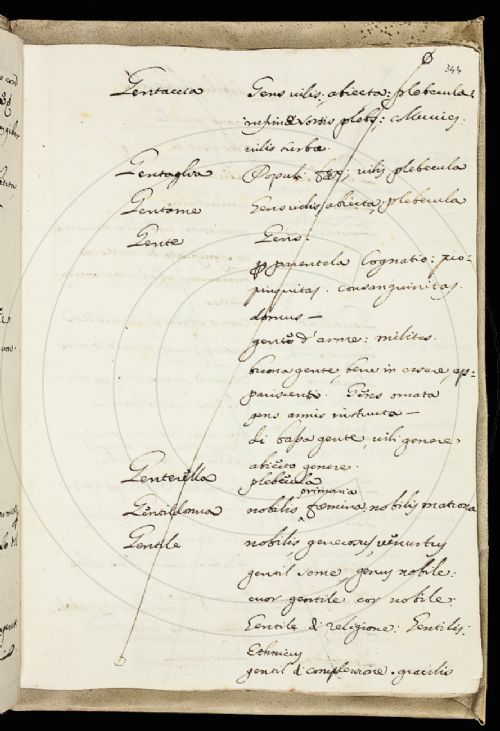 344
Gentaccia Gens vilis; abiecta; plebecula;
infimae sortis plebs; colluvies;
vilis turba
Gentaglia Populi faex; vilis plebecula
Gentame Gens vilis, abiecta; plebecula
Gente Gens.
parentela Cognatio; pro=
pinquitas. consanguinitas.
domus —
gente d'arme: milites.
buona gente, bene in essere, ap=
parisenti. Gens ornata
gens armis instructa —
di bassa gente, vili genere,
abiecto genere.
Genterella plebecula
primaria
Gentildonna nobilis foemina, nobilis matrona
Gentile nobilis, generosus, venustus
gentil seme, genus nobile:
cuor gentile cor nobile.
Gentile di religione: Gentilis;
Ethnicus
gentil di complessione. gracilis